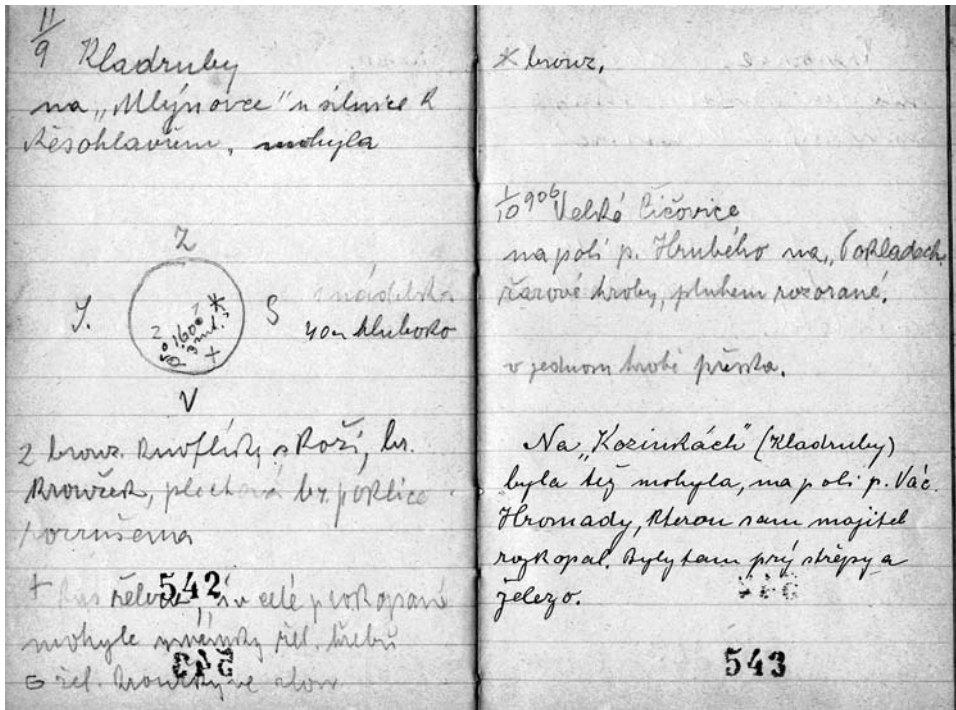 11/9 Kladruby
na „Mlýnovce" u silnice k
Kešohlavům, mohyla
Z
J.
S
40 cm hluboko
V
2 bronz. knoflíky s koží, br.
kroužek, plechová br. poklice
porušena
+ kus želez
542
i v celé prokopané
mohyle zlomky žel. hřebů
žel. kroužky
543
* bronz,
1/10 906 Velké Čičovice
na poli p. Hrubého na „Pokladech.
žárové hroby, pluhem rozorané.
v jednom hrobě přeska.
Na „Kozinkách" (Kladruby)
byla též mohyla, na poli p. Vác.
Hromady, kterou sam majitel
rozkopal. Byly tam prý střepy a
železo.
543